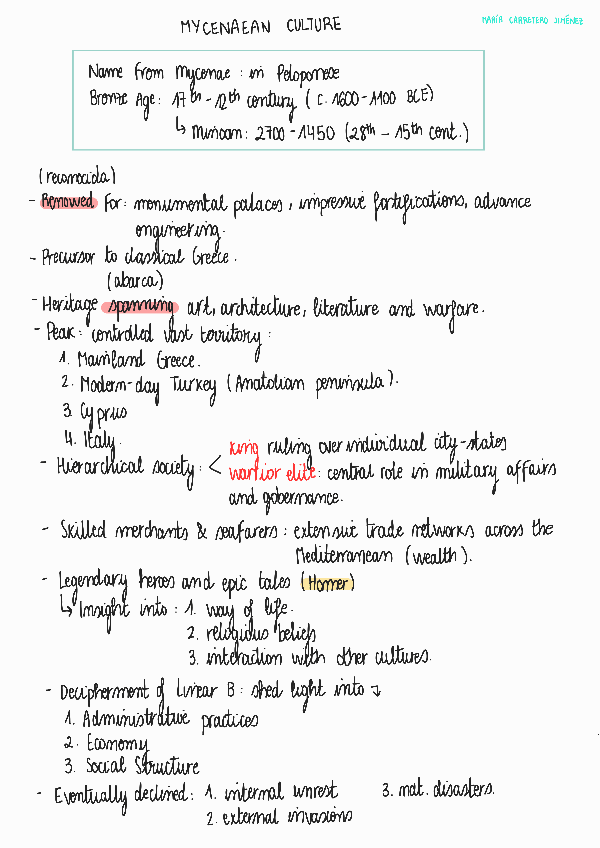 MYCENAEAN CULTURE
MARÍA CARRETERO JIMÉNEZ
Name from Mycenae : in Peloponese
Bronze Age : 17th - 12th century ( c. 1600 - 1100 BCE)
↳ Minoan : 2700 - 1450 (28th - 15th cent.)
(reconocida)
- Renowed for : monumental palaces, impressive fortifications, advance
engineering.
- Precursor to classical Greece.
(abarca)
- Heritage spanning art, architecture, literature and warfare.
- Peak : controlled vast territory :
1. Mainland Greece.
2. Modern-day Turkey (Anatolian peninsula).
3. Cyprus
4. Italy.
- Hierarchical society : < king ruling over individual city-states
warrior elite : central role in military affairs
and gobernance.
- Skilled merchants & seafarers : extensive trade networks across the
Mediterranean (wealth).
- Legendary heroes and epic tales (Homer)
↳ Insight into : 1. way of life.
2. religious beliefs
3. interaction with other cultures.
- Decipherment of Linear B : shed light into ↴
1. Administrative practices
2. Economy
3. Social Structure
- Eventually declined : 1. internal unrest 3. nat. disasters.
2. external invasions